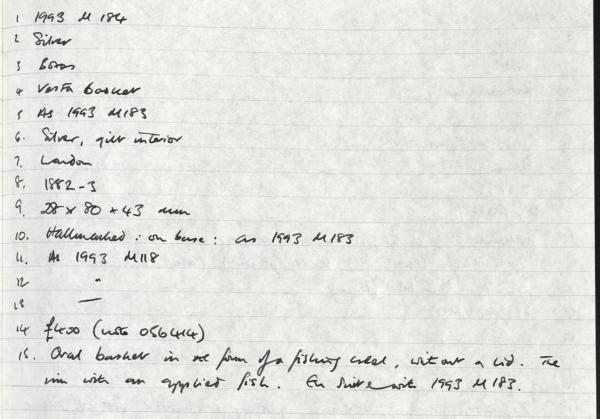 1 1993 M 184
2 Silver
3 Boxes
4 Vesta basket
5 As 1993 M183
6. Silver, gilt interior
7. London
8. 1882-3
9. 28 x 80 x 43 mm
10. Hallmarked: on base: as 1993 M183
11. As 1993 M118
12 "
13 —
14 £400 (note 056414)
15. Oval basket in the form of a fishing creel, without a lid. The
rim with an applied fish. En suite with 1993 M183.